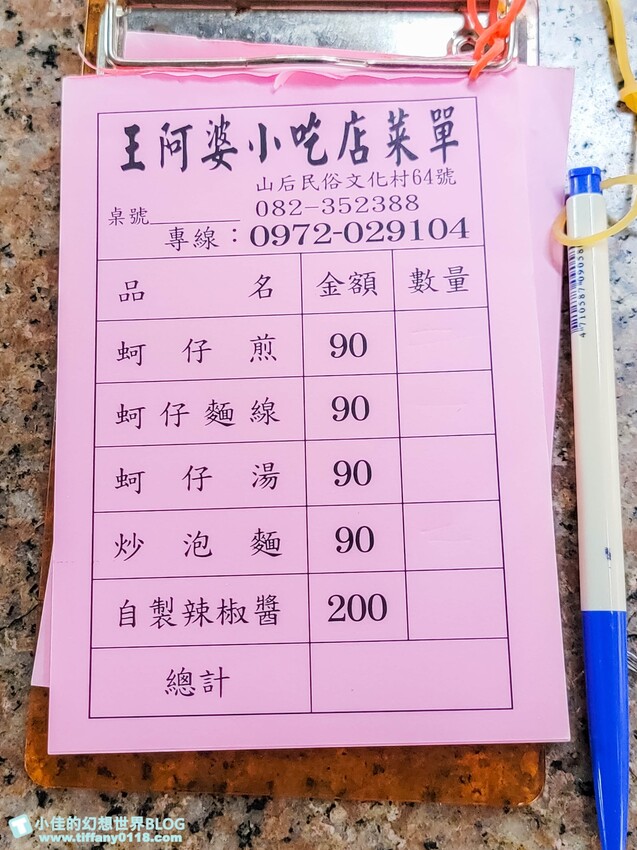 王阿婆小吃店菜單
山后民俗文化村64號
桌號________ 082-352388
專線：0972-029104
品名 金額 數量
蚵仔煎 90
蚵仔麵線 90
蚵仔湯 90
炒泡麵 90
自製辣椒醬 200
總計
小佳的幻想世界BLOG
www.tiffany0118.com